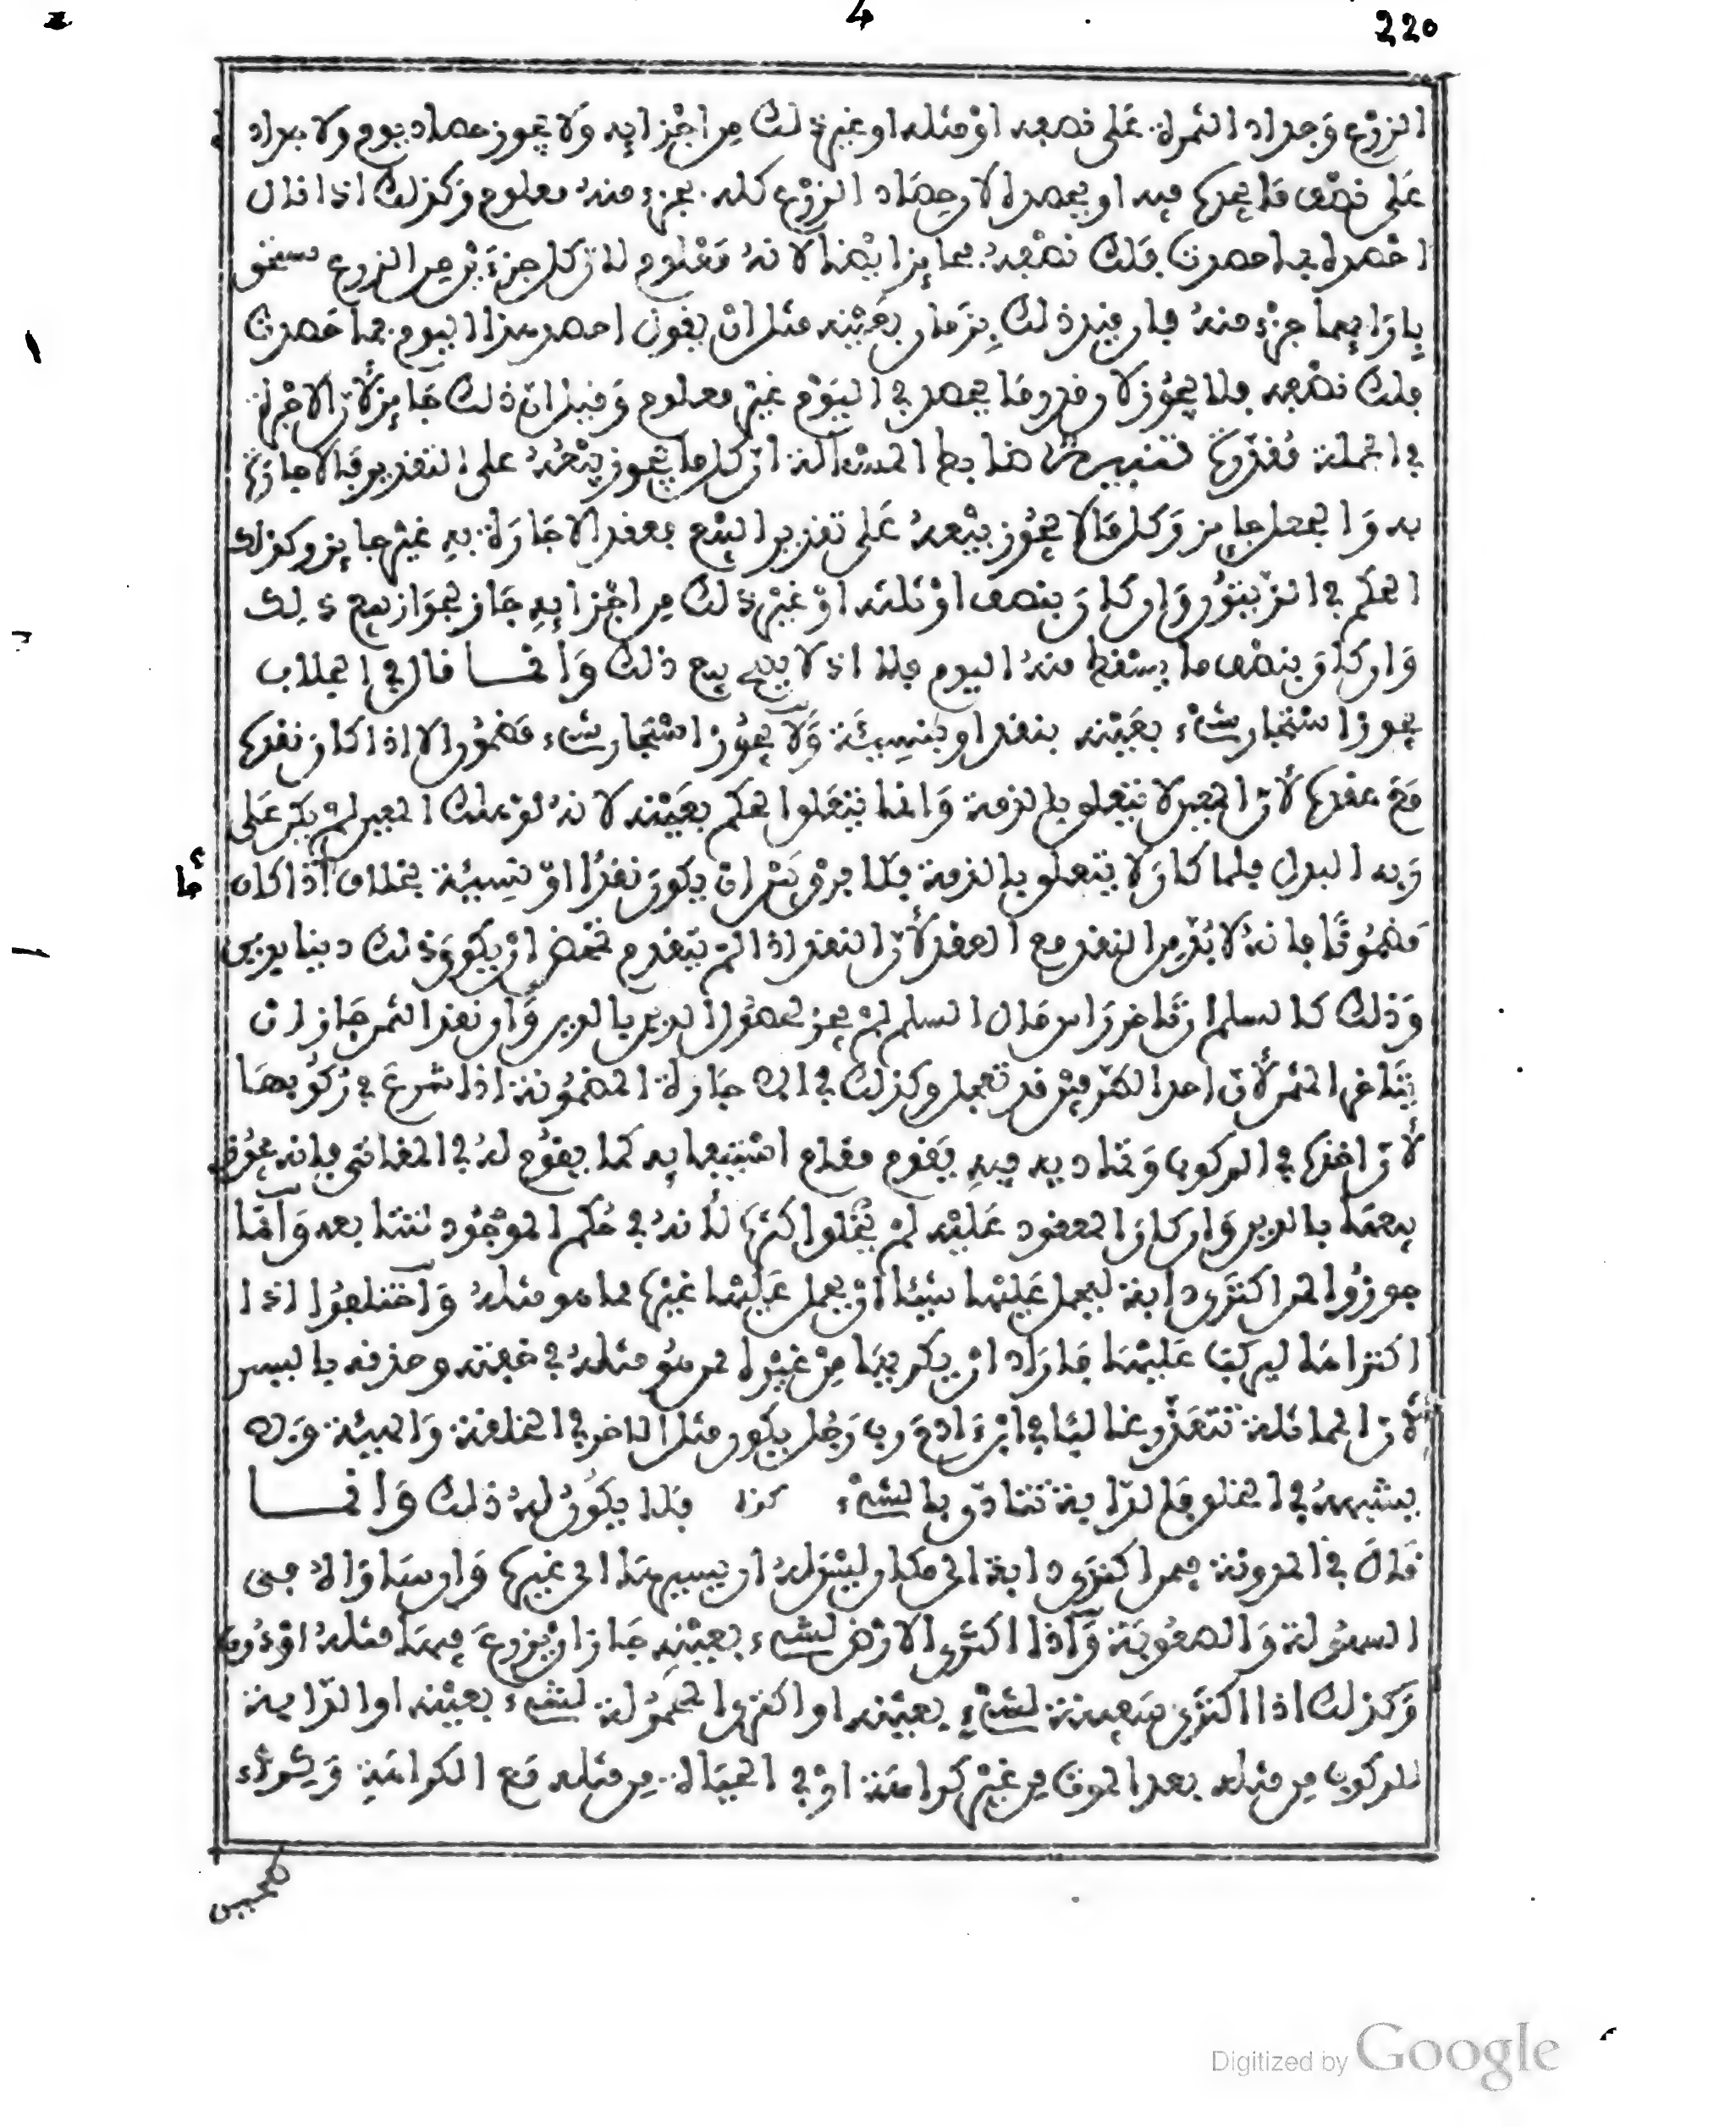 220
4
الزرع وجداد الثمرة على نصفه او مثله او غير ذلك من اجزايه ولا يجوز حصاد يوم ولا جداد
على نصف ما يجدك فيه او يحصد لان حصاد الزرع كله بجزء منه معلوم وكذلك اذا قال
احصد لي بما حصدت فلك نصفه فجايز ايضا لانه معلوم لان كل جزء من الزرع يستحق
بازايها جزء منه فان قيد ذلك بزمان بعينه مثل ان يقول احصد هذا اليوم فما حصدت
فلك نصفه فلا يجوز لان قدر ما يحصد في اليوم غير معلوم وقيل ان ذلك جايز لان الاجرة
في الجملة مقدرة تنبيه ضابط المسألة ان كل ما يجوز بيعه على التقدير فالاجارة
به والجعل جايز وكل ما لا يجوز بيعه على تقدير البيع فعقد الاجارة به غير جايز وكذلك
الحكم في الزيتون وان كان بنصف او ثلثه او غير ذلك من اجزايه جاز لجواز بيع ذلك
وان كان بنصف ما يسقط منه اليوم فلا اذ لا يصح بيع ذلك وانما قال في الجلاب
يجوز استيجار شيء بعينه بنقد او بنسيئة ولا يجوز استيجار شيء مضمون الا اذا كان نقدها
مع عقدها لان المعين لا يتعلق بالذمة وانما يتعلق الحكم بعينه لانه لو هلك المعين لم يكن على
ربه البدل فلما كان لا يتعلق بالذمة فلا فرق بين ان يكون نقدا او نسيئة بخلاف اذا كان
مضمونا فانه لا بد من النقد مع العقد لان النقد اذا لم يتقدم تمحض ان يكون ذلك دينا بدين
وذلك كالسلم ان تاخر راس مال السلم لم يجز لحصول الدين بالدين وان نقد الثمن جاز ان
يتاخر المثمن لان احد الطرفين قد تعجل وكذلك في الاجارة المضمونة اذا شرع في ركوبها
لان اخذه في الركوب وتماديه فيه يقوم مقام استيفايه كما يقوم له في المقاثي فانه يجوز
بيعها بالدين وان كان المعقود عليه لم يخلق اكثرها لانه في حكم الموجود لتتابعه وانما
جوزوا لمن اكترى دابة ليحمل عليها شيئا ان يحمل عليها غيره مما هو مثله واختلفوا اذا
اكتراها ليركب عليها فاراد ان يكريها من غيره ممن هو مثله في خفته وحذفه بالسير
لان المماثلة تتعذر غالبا في ابن ءادم ورب رجل يكون مثل الاخر في الخلقة والهيئة ولا
يشبهه في الخلق والدابة تتاذى بالشيء كذا فلا يكون له ذلك وانما
قال في المدونة فيمن اكترى دابة الى مكان ليس له ان يسير بها الى غيرها وان ساواه في
السهولة والصعوبة واذا اكترى الارض لشيء بعينه جاز ان يزرع فيها مثله او دونه
وكذلك اذا اكترى سفينة لشيء بعينه او اكترى الحمولة لشيء بعينه او الدابة
للركوب من مثله بعد الموت من غير كراهة او في الحياة من مثله مع الكراهة ويكره
Digitized by Google